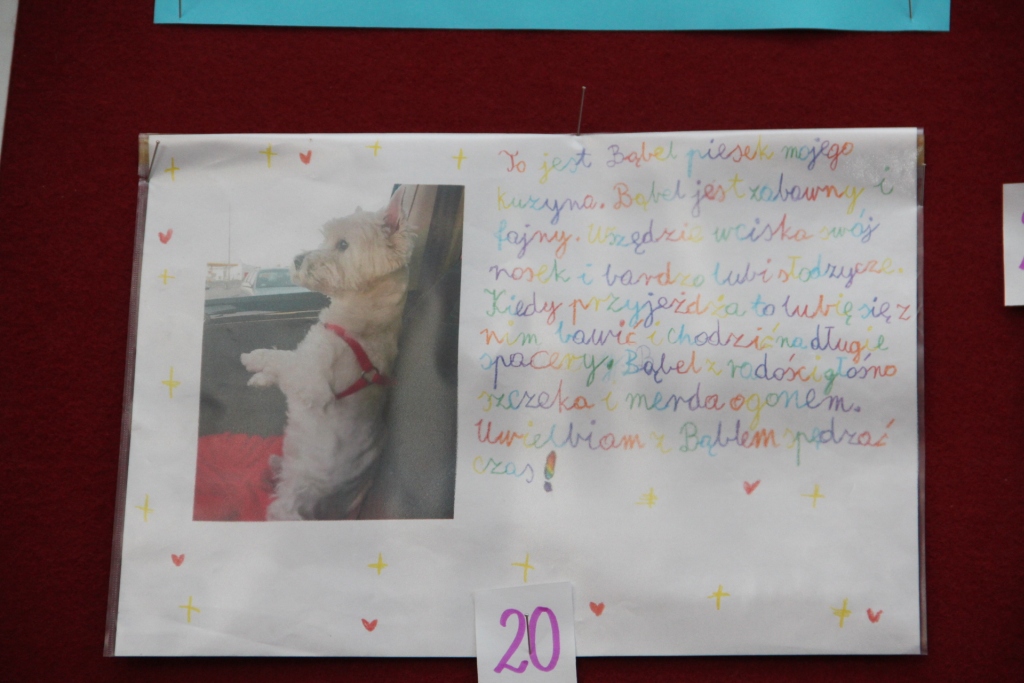 To jest Bąbel piesek mojego
kuzyna. Bąbel jest zabawny i
fajny. Wszędzie wciska swój
nosek i bardzo lubi słodzycze.
Kiedy przyjeżdża to lubię się z
nim bawić i chodzić na długie
spacery. Bąbel z radości głośno
szczeka i merda ogonem.
Uwielbiam z Bąblem spędzać
czas!
20